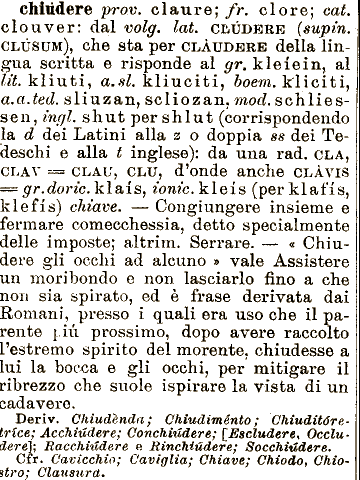 chiúdere prov. claure; fr. clore; cat.
clouver: dal volg. lat. CLÚDERE (supin.
CLÚSUM), che sta per CLÀUDERE della lin-
gua scritta e risponde al gr. kleíein, al
lit. kliuti, a.sl. kliuciti, boem. kliciti,
a.a.ted. sliuzan, scliozan, mod. schlies-
sen, ingl. shut per shlut (corrispondendo
la d dei Latini alla z o doppia ss dei Te-
deschi e alla t inglese): da una rad. CLA,
CLAV = CLAU, CLU, d'onde anche CLÀVIS
= gr.doric. klaís, ionic. kleís (per klafís,
klefís) chiave. — Congiungere insieme e
fermare comecchessia, detto specialmente
delle imposte; altrim. Serrare. — « Chiu-
dere gli occhi ad alcuno » vale Assistere
un moribondo e non lasciarlo fino a che
non sia spirato, ed è frase derivata dai
Romani, presso i quali era uso che il pa-
rente piú prossimo, dopo avere raccolto
l'estremo spirito del morente, chiudesse a
lui la bocca e gli occhi, per mitigare il
ribrezzo che suole ispirare la vista di un
cadavere.
Deriv. Chiudènda; Chiudiménto; Chiuditóre-
tríce; Acchiúdere; Conchiúdere; [Escludere, Occlu-
dere]; Racchiúdere e Rinchiúdere; Socchiúdere.
Cfr. Cavicchio; Caviglia; Chiave; Chiodo, Chio-
stro; Clausura.